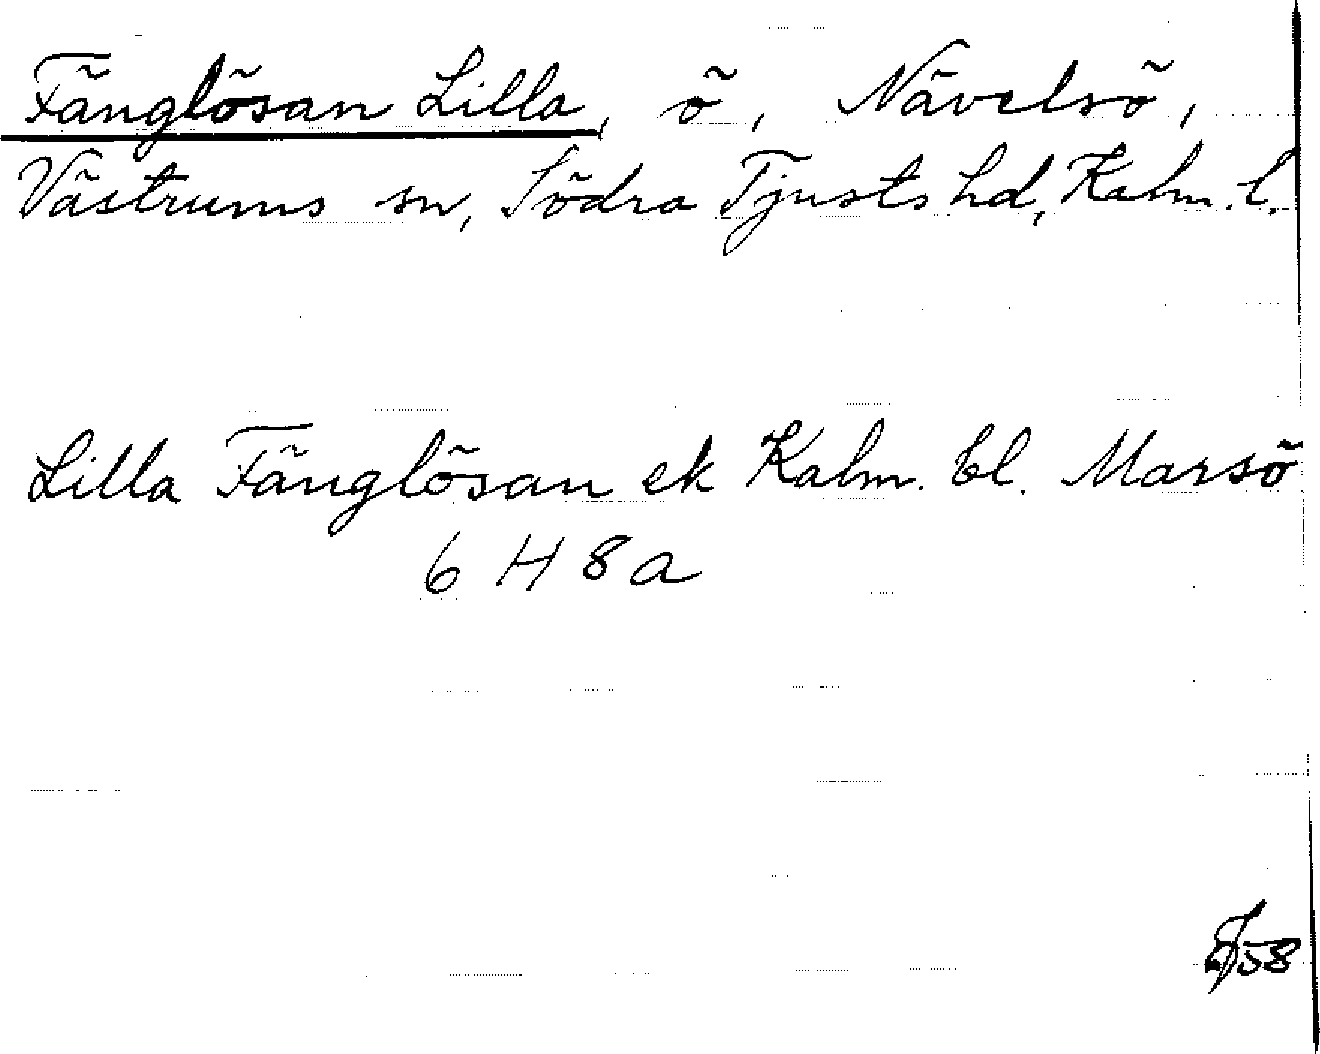 Fänglösan Lilla, ö, Nävelsö,
Västrums sn, Södra Tjusts hd, Kalm. l.
Lilla Fänglösan ek Kalm. bl. Marsö
6 H 8a
58